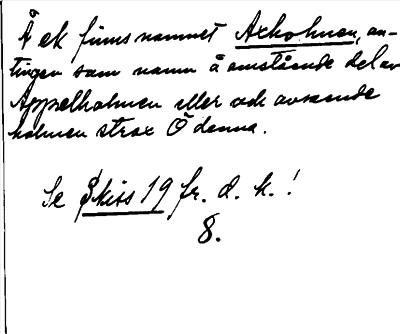 Å ek finns namnet Axholmen, an-
tingen som namn å omstående del av
Appelholmen eller och avseende
holmen strax Ö denna.
Se Skiss 19 fr. d. k.!
8.